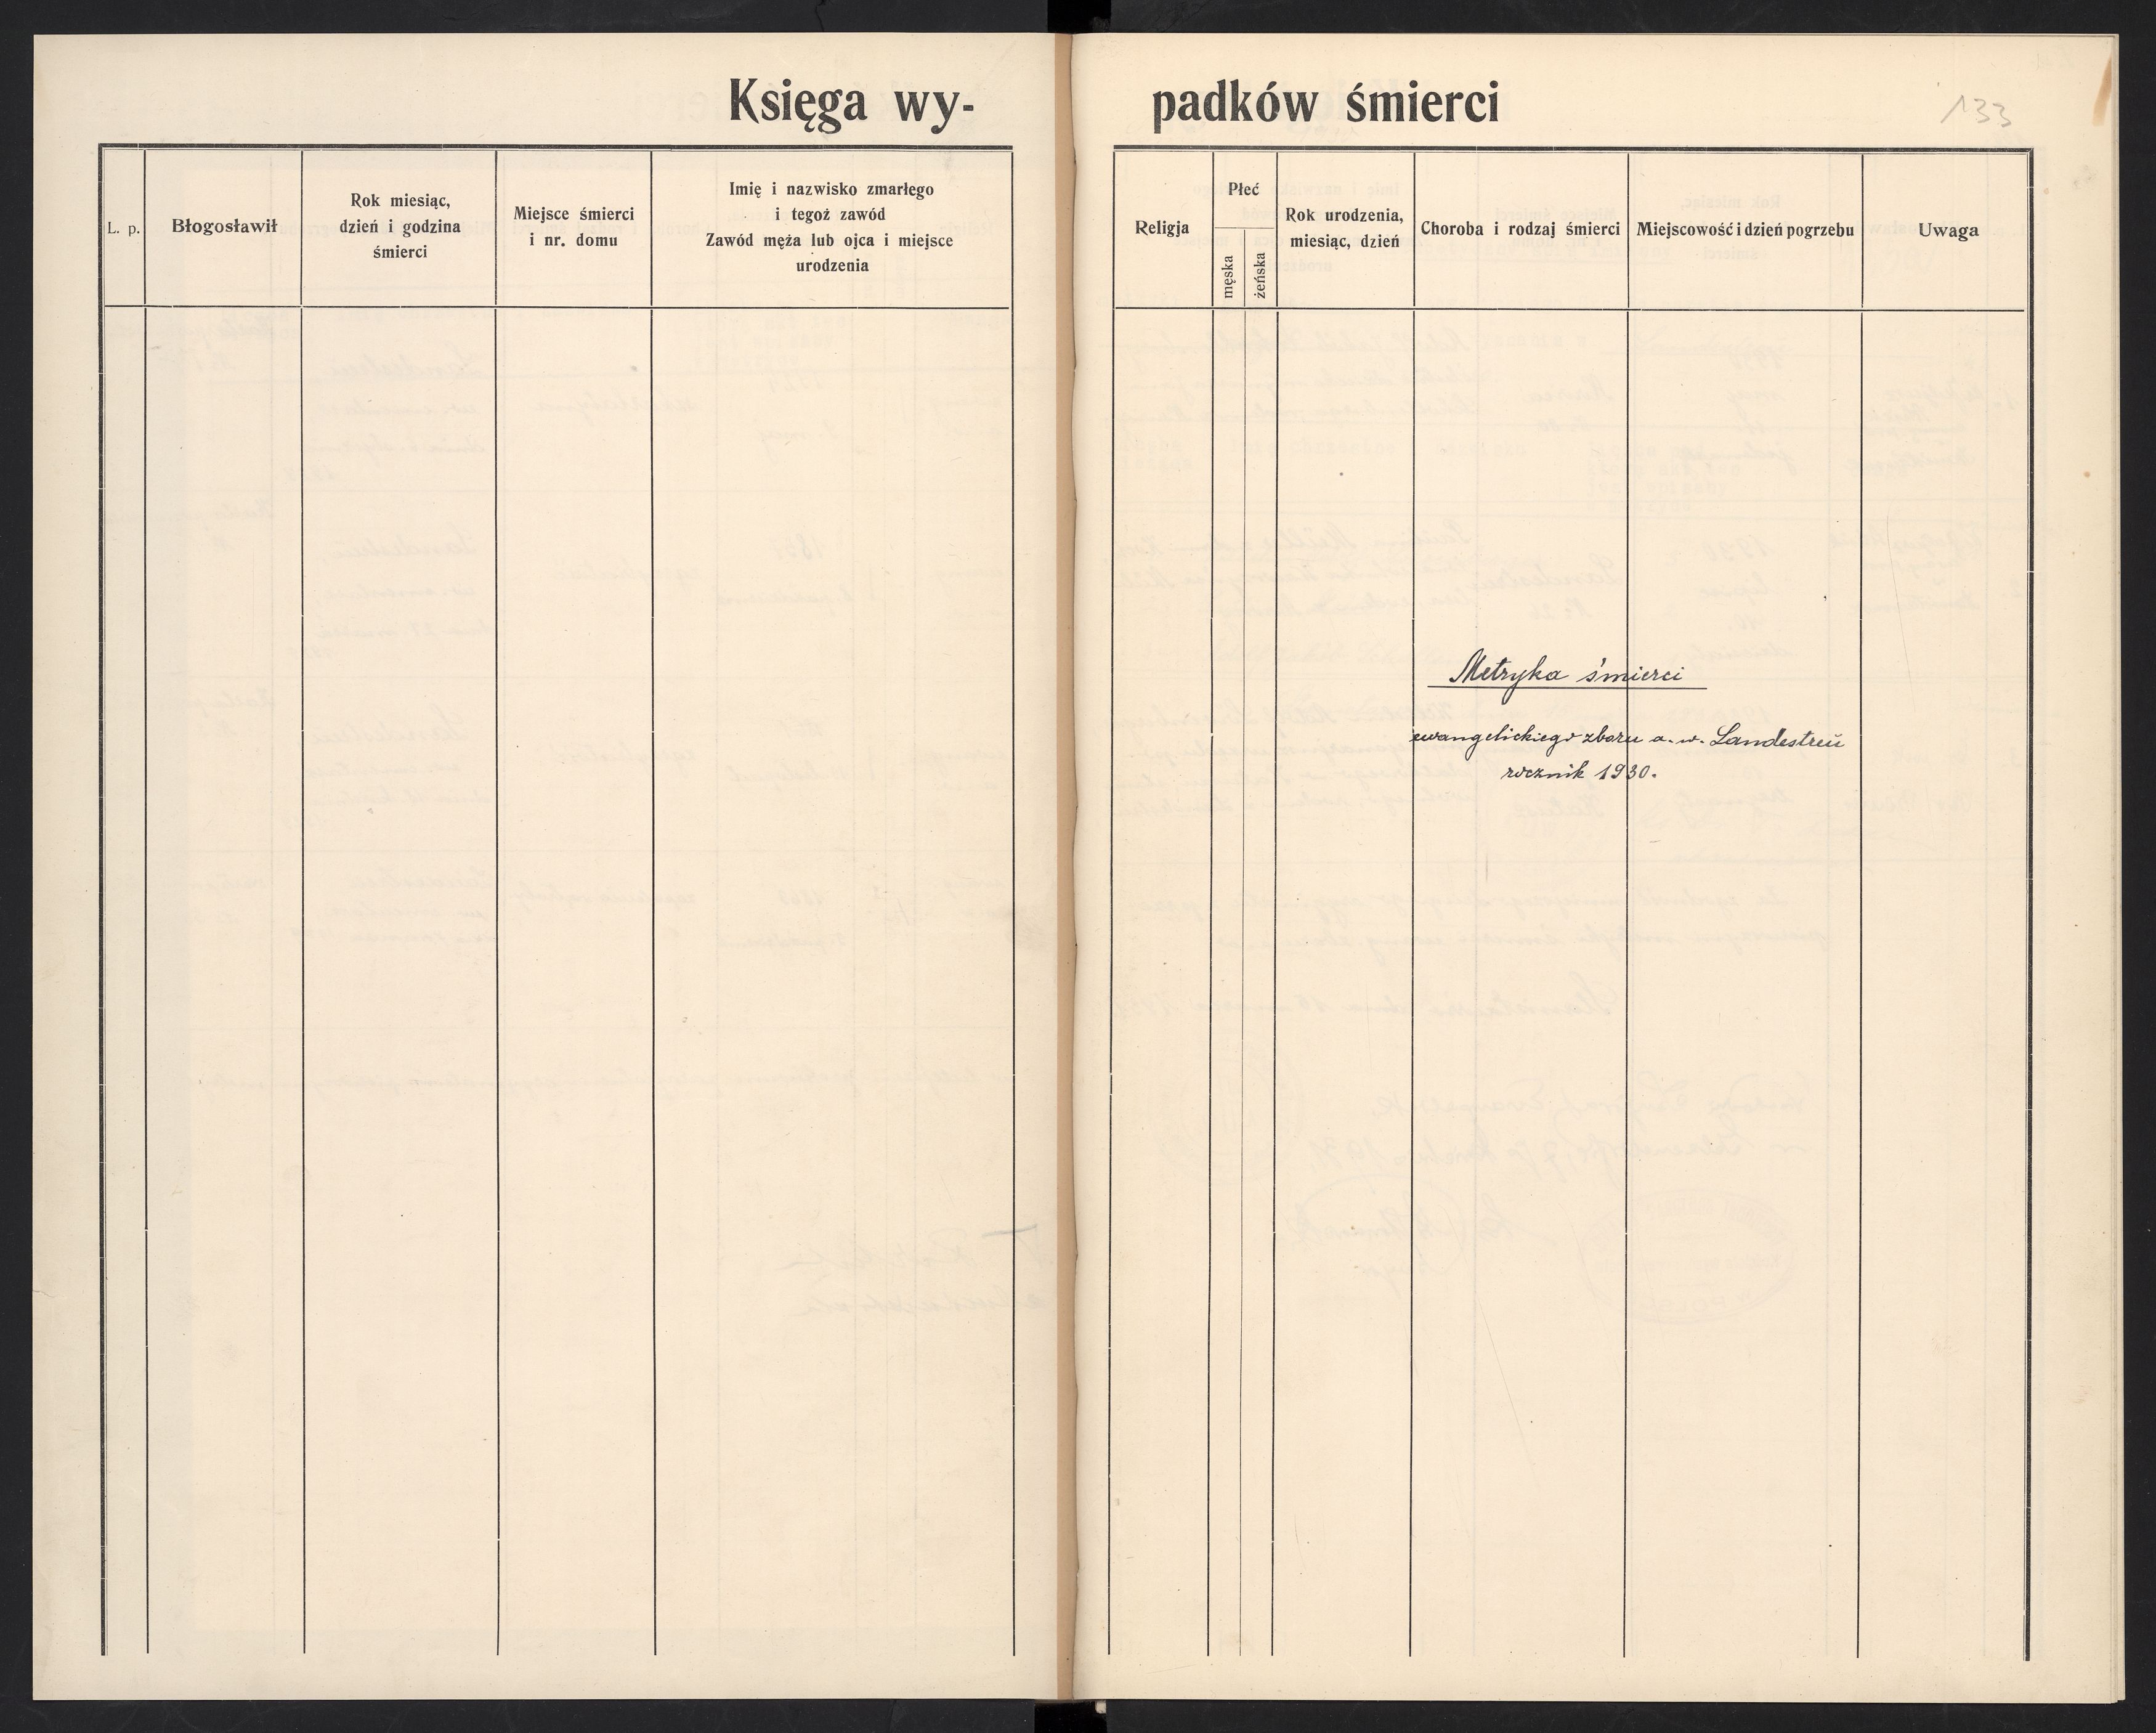 Księga wy-
padków śmierci
133
L. p.
Błogosławił
Rok miesiąc,
dzień i godzina
śmierci
Miejsce śmierci
i nr. domu
Imię i nazwisko zmarłego
i tegoż zawód
Zawód męża lub ojca i miejsce
urodzenia
Religja
Płeć
męska
żeńska
Rok urodzenia,
miesiąc, dzień
Choroba i rodzaj śmierci
Miejscowość i dzień pogrzebu
Uwaga
Metryka śmierci
ewangelickiego zboru a. w. Landestreu
rocznik 1930.